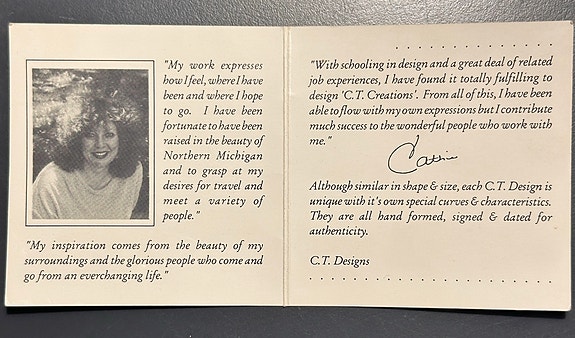 "My work expresses
how I feel, where I have
been and where I hope
to go. I have been
fortunate to have been
raised in the beauty of
Northern Michigan
and to grasp at my
desires for travel and
meet a variety of
people."
"My inspiration comes from the beauty of my
surroundings and the glorious people who come and
go from an everchanging life."
"With schooling in design and a great deal of related
job experiences, I have found it totally fulfilling to
design 'C.T. Creations'. From all of this, I have been
able to flow with my own expressions but I contribute
much success to the wonderful people who work with
me."
Although similar in shape & size, each C.T. Design is
unique with it's own special curves & characteristics.
They are all hand formed, signed & dated for
authenticity.
C.T. Designs